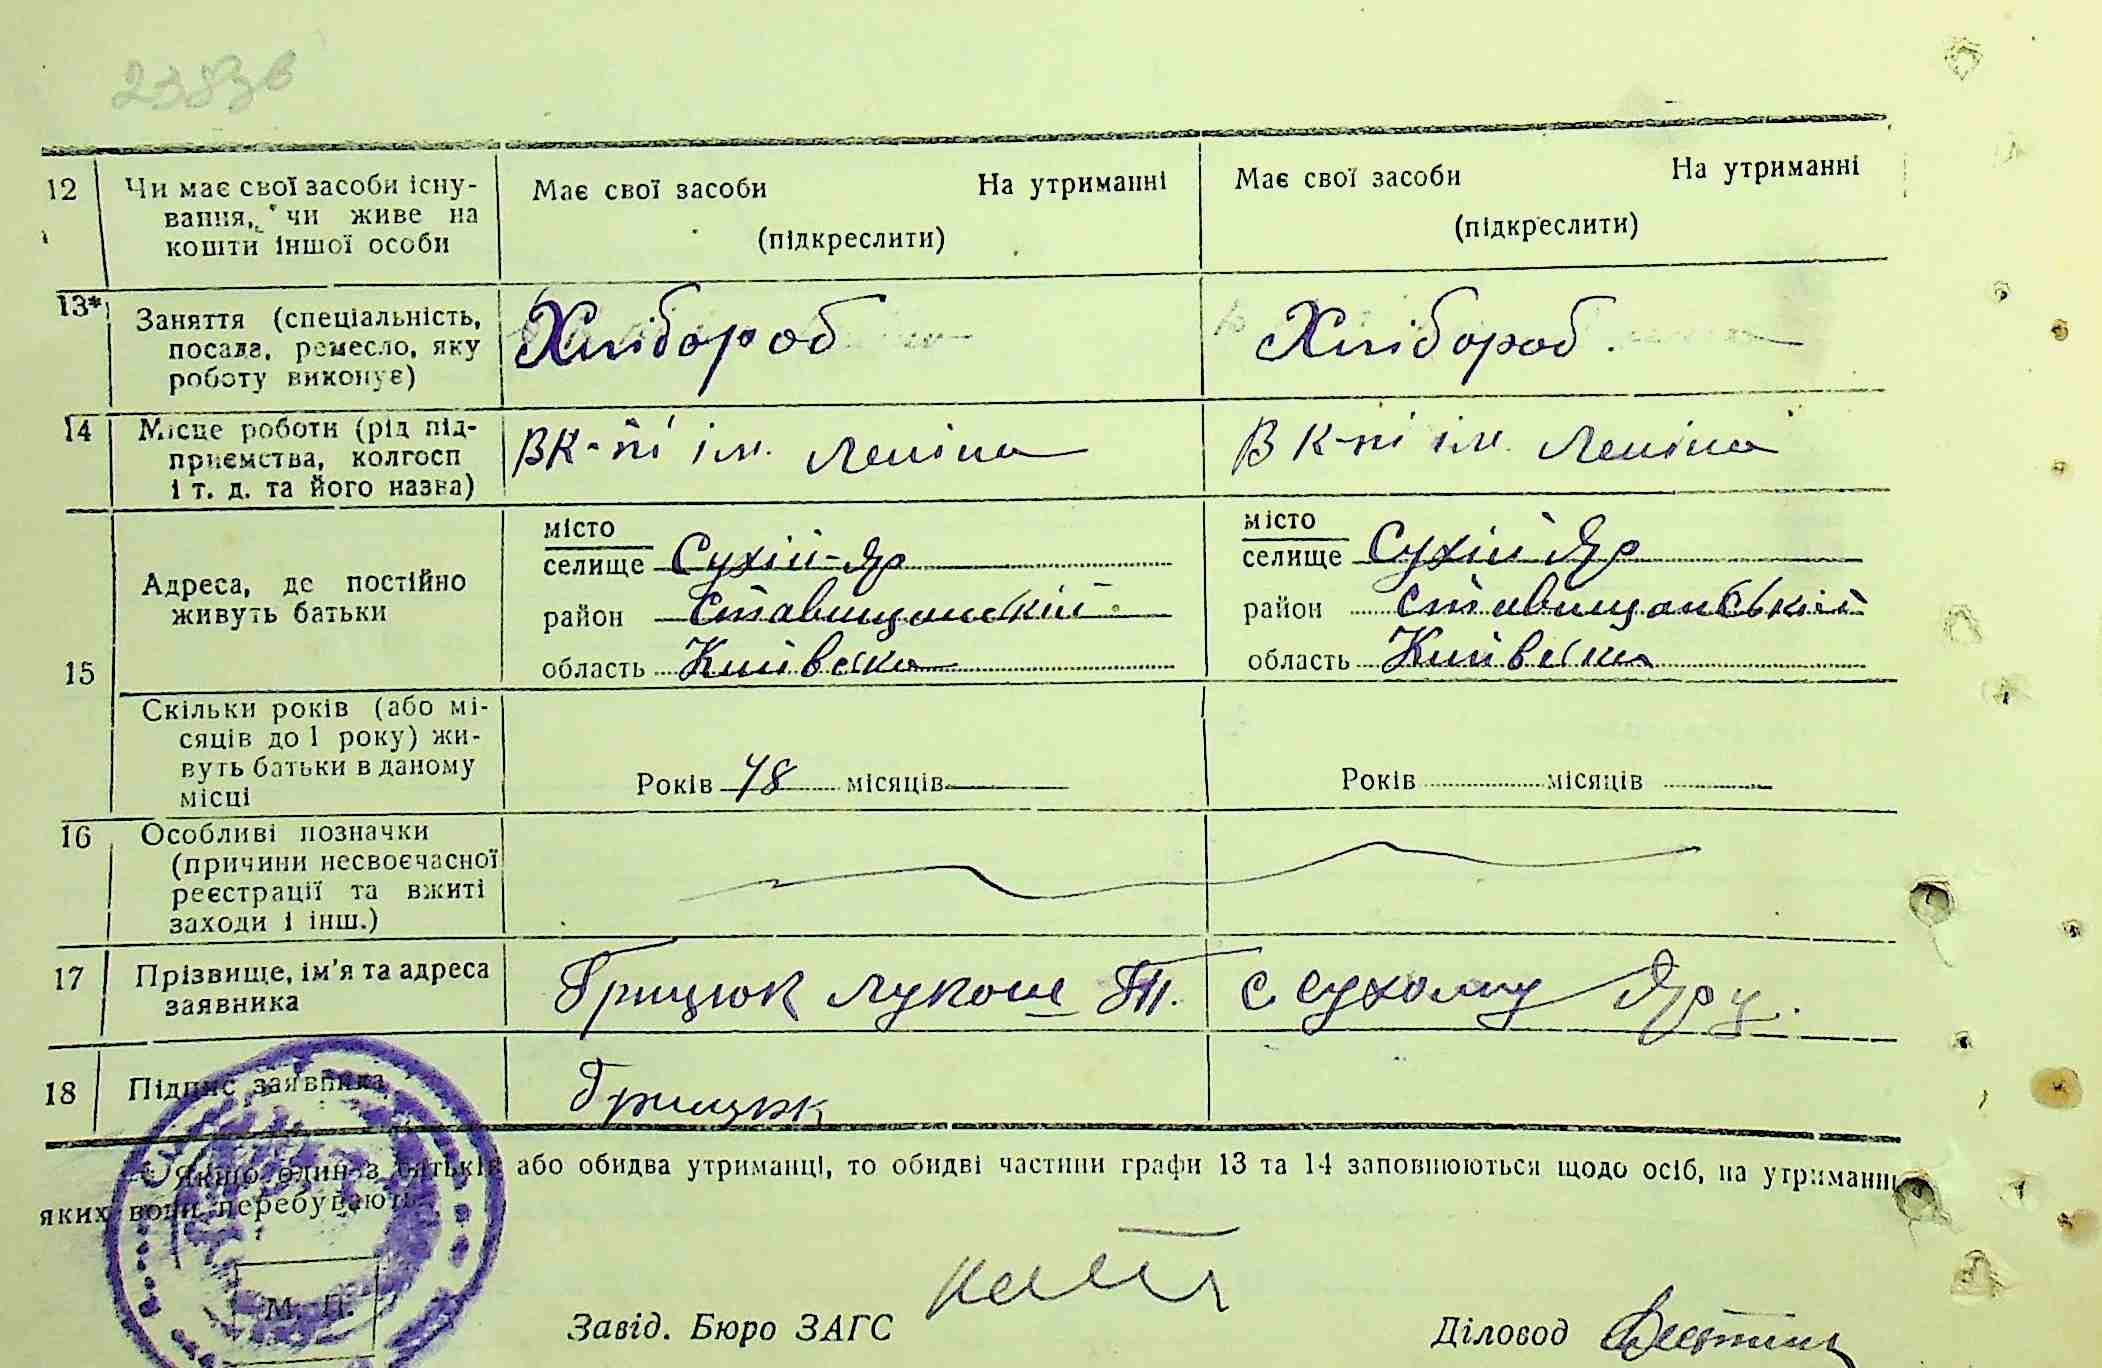 2383в
12 Чи має свої засоби існу- Має свої засоби На утриманні Має свої засоби На утриманні
вання, чи живе на (підкреслити) (підкреслити)
кошти іншої особи
13* Заняття (спеціальність, Хлібороб Хлібороб
посада, ремесло, яку
роботу виконує)
14 Місце роботи (рід під- В К-пі ім. Леніна В К-пі ім. Леніна
приємства, колгосп
і т. д. та його назва)
15 Адреса, де постійно місто місто
живуть батьки селище Сухий-Яр селище Сухий Яр
район Ставищанский район Ставищанський
область Київська область Київська
Скільки років (або мі-
сяців до 1 року) жи-
вуть батьки в даному Років 48 місяців Років місяців
місці
16 Особливі позначки
(причини несвоєчасної
реєстрації та вжиті
заходи і інш.)
17 Прізвище, ім'я та адреса Грицюк Лукаш Т. с Сухому Яру.
заявника
18 Підпис заявника Грицюк
Якщо один з батьків або обидва утриманці, то обидві частини графи 13 та 14 заповнюються щодо осіб, на утриманні
яких вони перебувають.
М. П.
Завід. Бюро ЗАГС Діловод